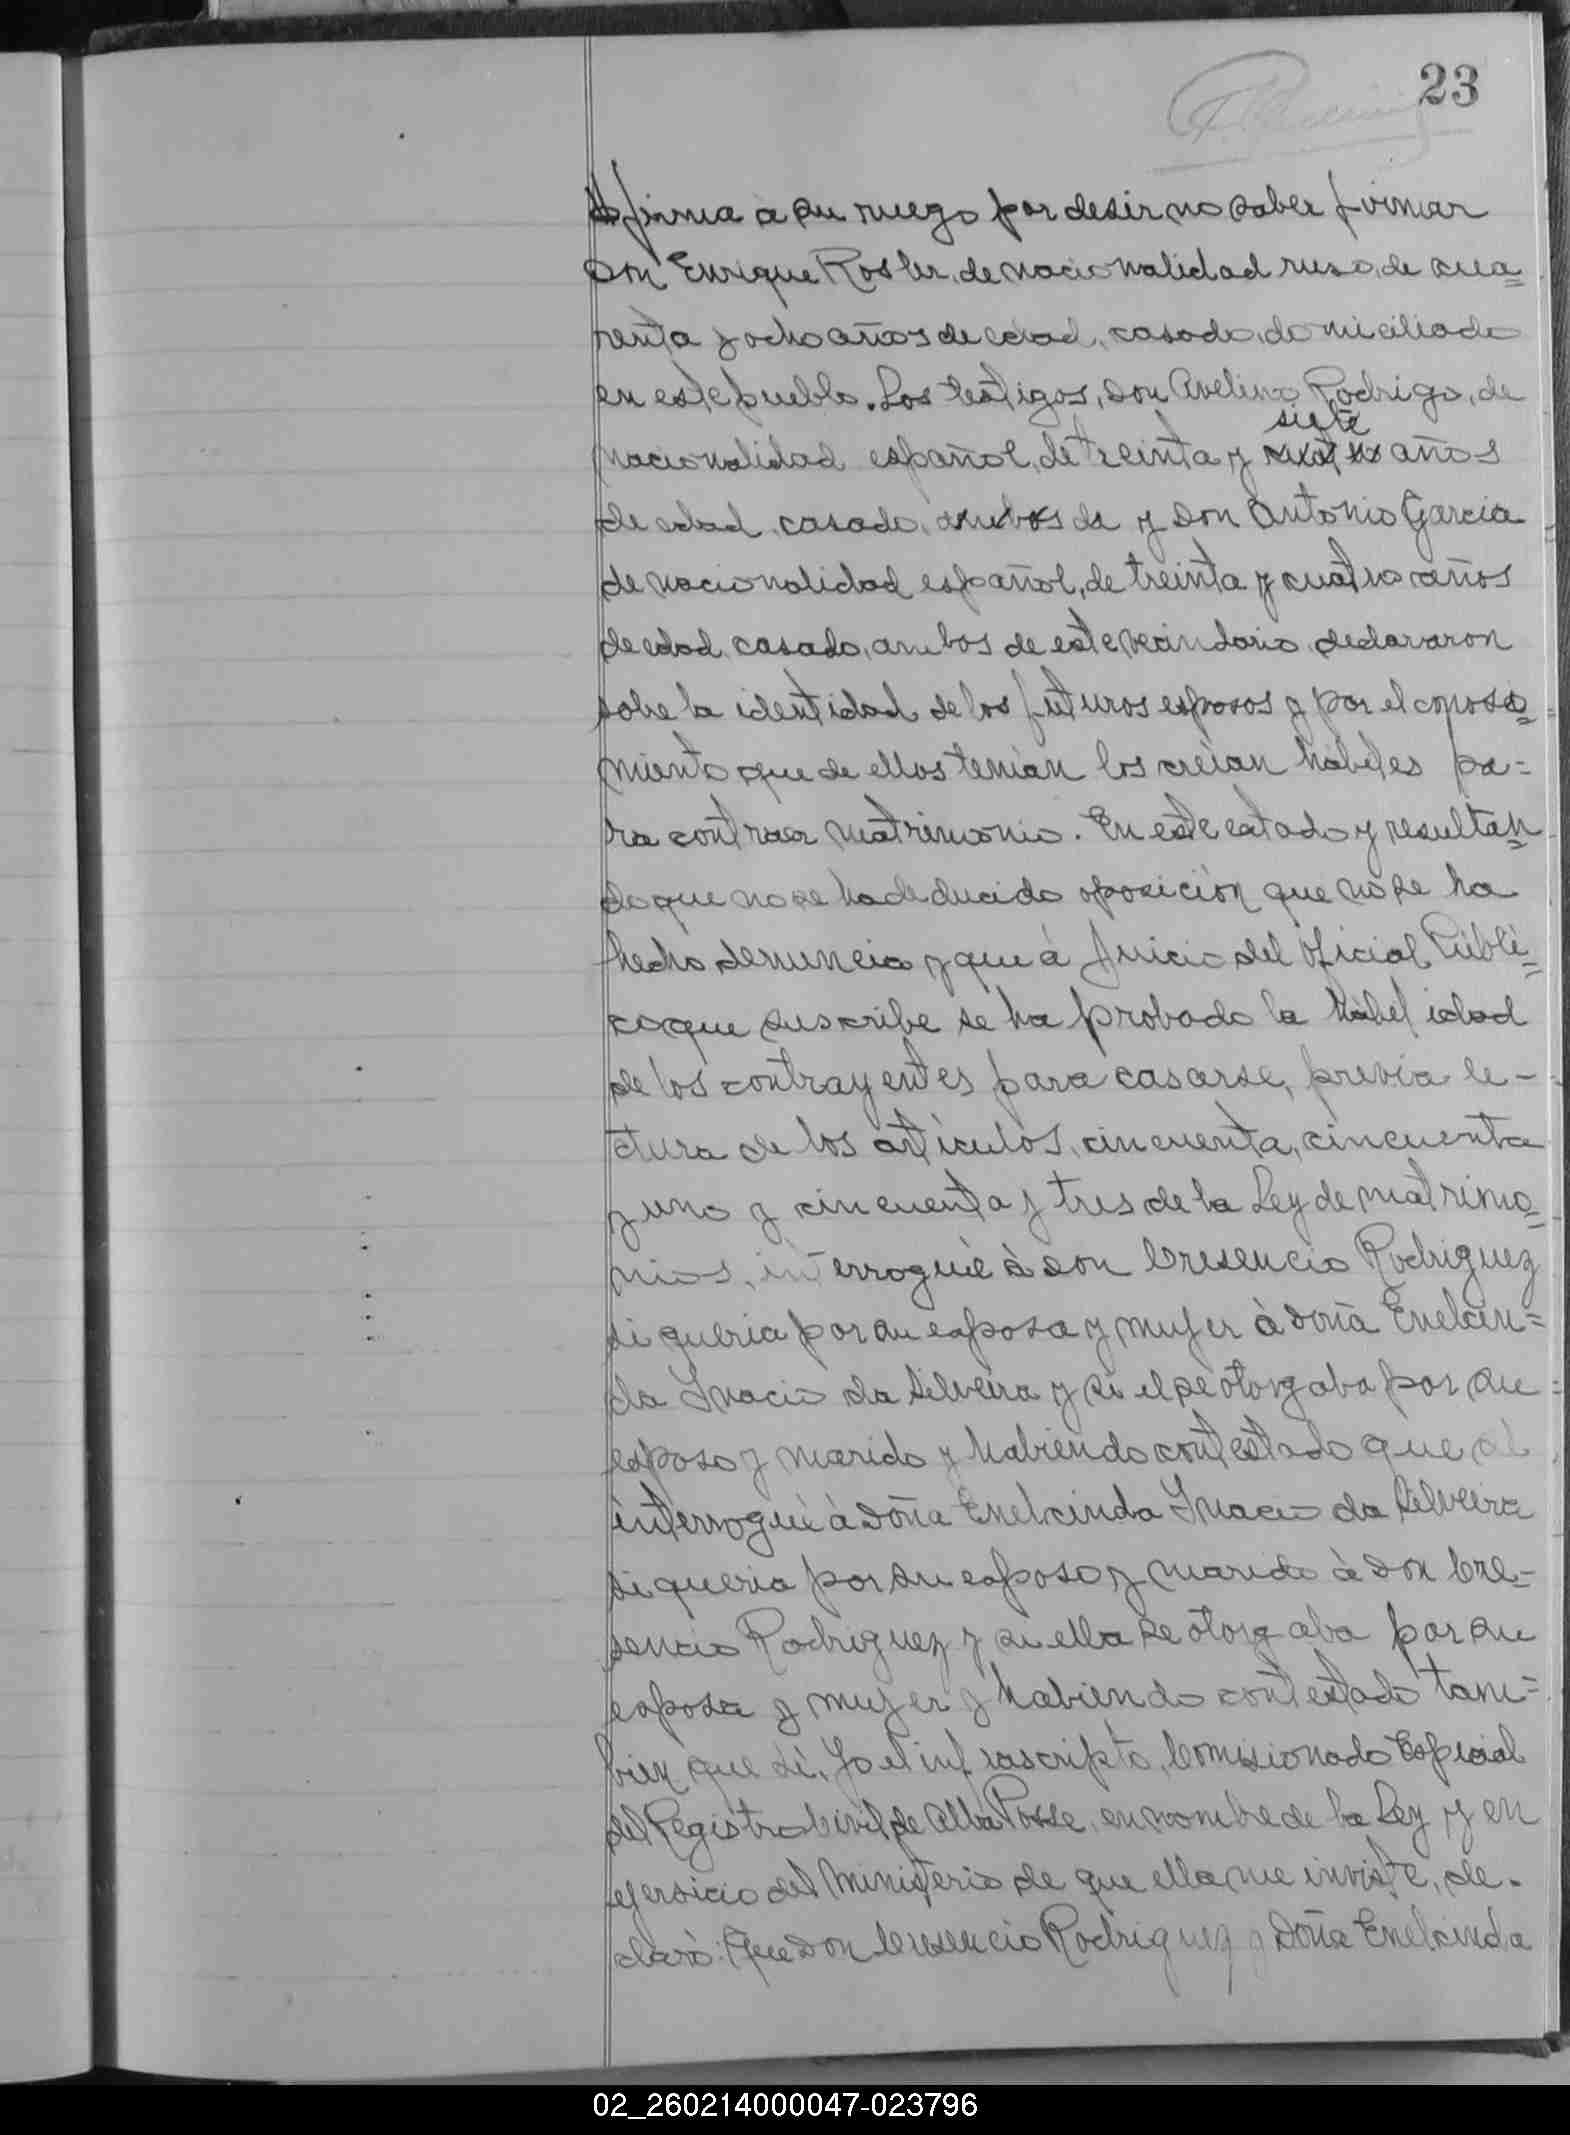 23
firma a su ruego por desir no saber firmar
Don Enrique Rosler, de nacionalidad ruso, de cua=
renta y ocho años de edad, casado, domiciliado
en este pueblo. Los testigos, Don Avelino Rodrigo, de
siete
nacionalidad español, de treinta y años
de edad, casado, ambos de y Don Antonio Garcia
de nacionalidad español, de treinta y cuatro años
de edad, casado, ambos de este vecindario, declararon
sobre la identidad de los futuros esposos y por el conosi=
miento que de ellos tenian los creian hábiles pa=
ra contraer matrimonio. En este estado y resultan=
do que no se ha deducido oposición que no se ha
hecho denuncia y que á juicio del Oficial Públi=
co que suscribe se ha probado la hábilidad
de los contrayentes para casarse, previa le-
ctura de los artículos, cincuenta, cincuenta
y uno y cincuenta y tres de la Ley de matrimo=
nios, interrogué à Don Cresencio Rodriguez
si queria por su esposa y mujer à Doña Enelcin=
da Ynacio da Silveira y si el se otorgaba por su
esposo y marido y habiendo contestado que si
interrogué à Doña Enelcinda Ynacio da Silveira
si queria por su esposo y marido à Don Cre=
sencio Rodriguez y si ella se otorgaba por su
esposa y mujer y habiendo contestado tam=
bien que sí, Yo el infrascripto, Comisionado Especial
del Registro Civil de Alba Posse, en nombre de la Ley y en
ejersicio del Ministerio de que ella me inviste, de-
claro: Que Don Cresencio Rodriguez y Doña Enelcinda
02_260214000047-023796